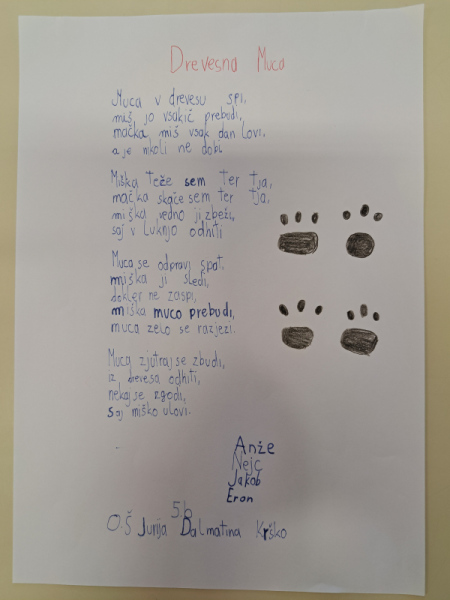 Drevesna Muca
Muca v drevesu spi,
miš jo vsakič prebudi,
mačka miš vsak dan lovi,
a je nikoli ne dobi.
Miška teče sem ter tja,
mačka skače sem ter tja,
miška vedno ji zbeži,
saj v luknjo odhiti
Muca se odpravi spat.
miška ji sledi,
dokler ne zaspi,
miška muco prebudi,
muca zelo se razjezi.
Muca zjutraj se zbudi,
iz drevesa odhiti,
nekaj se zgodi,
saj miško ulovi.
Anže
Nejc
Jakob
Eron
5.b
O.Š Jurija Dalmatina Krško